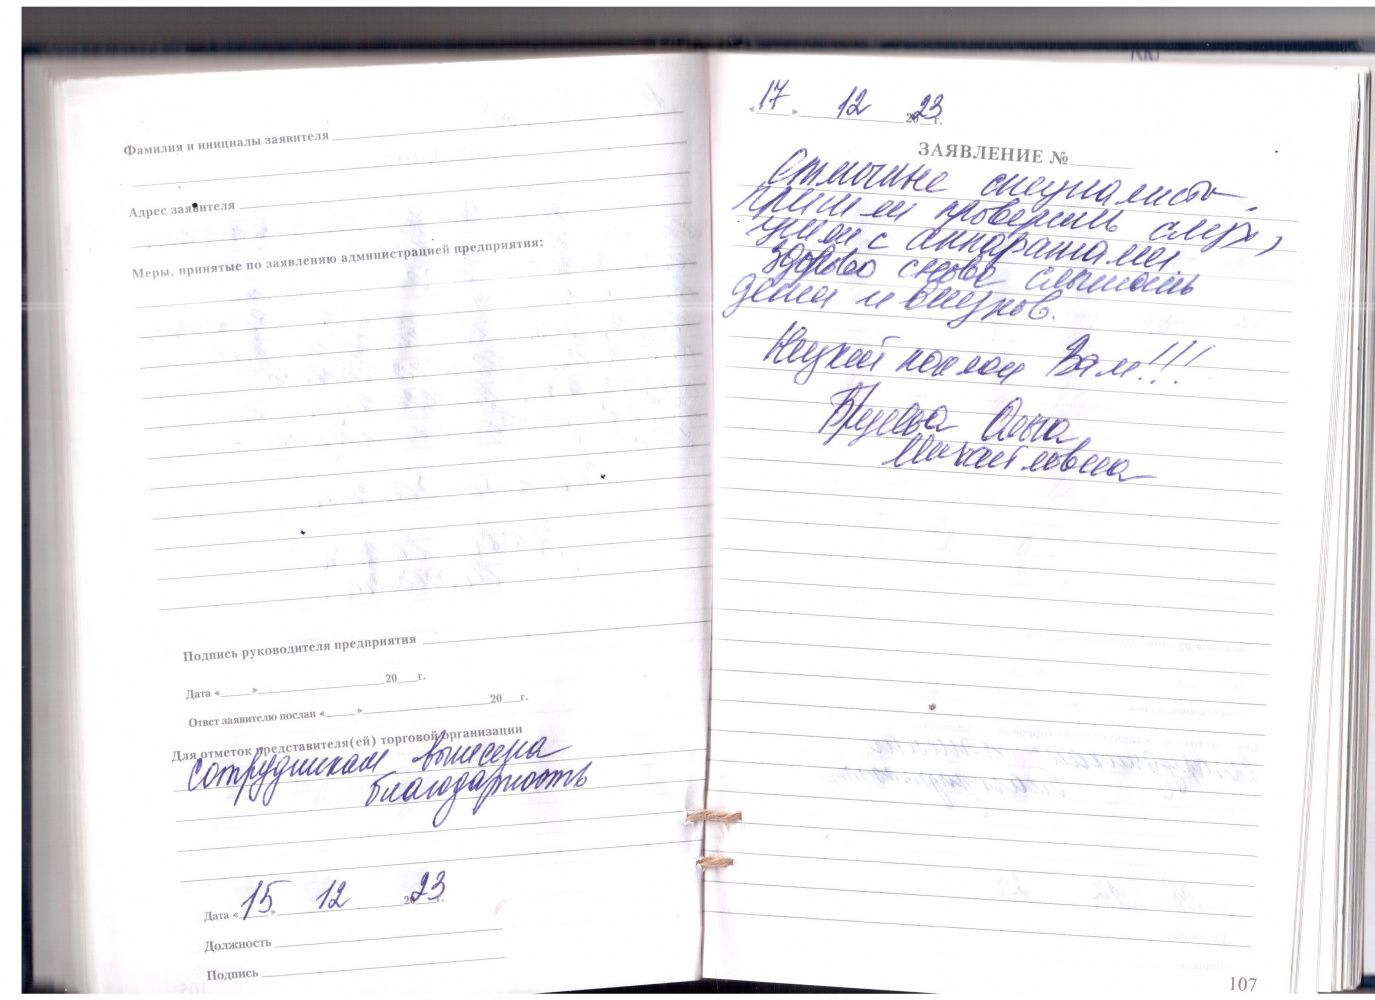 Фамилия и инициалы заявителя
Адрес заявителя
Меры, принятые по заявлению администрацией предприятия:
Подпись руководителя предприятия
Дата «____»____________20___г.
Ответ заявителю послан «____»____________20___г.
Для отметок представителя(ей) торговой организации
сотрудникам вынесена
благодарность
Дата «15» 12 2023г.
Должность
Подпись
«17» 12 2023г.
ЗАЯВЛЕНИЕ №
Отличные специалисты,
пришли проверить слух,
ушли с аппаратами
Здорово снова слышать
детей и внуков.
Низкий поклон Вам!!!
Ольга
Михайловна
107